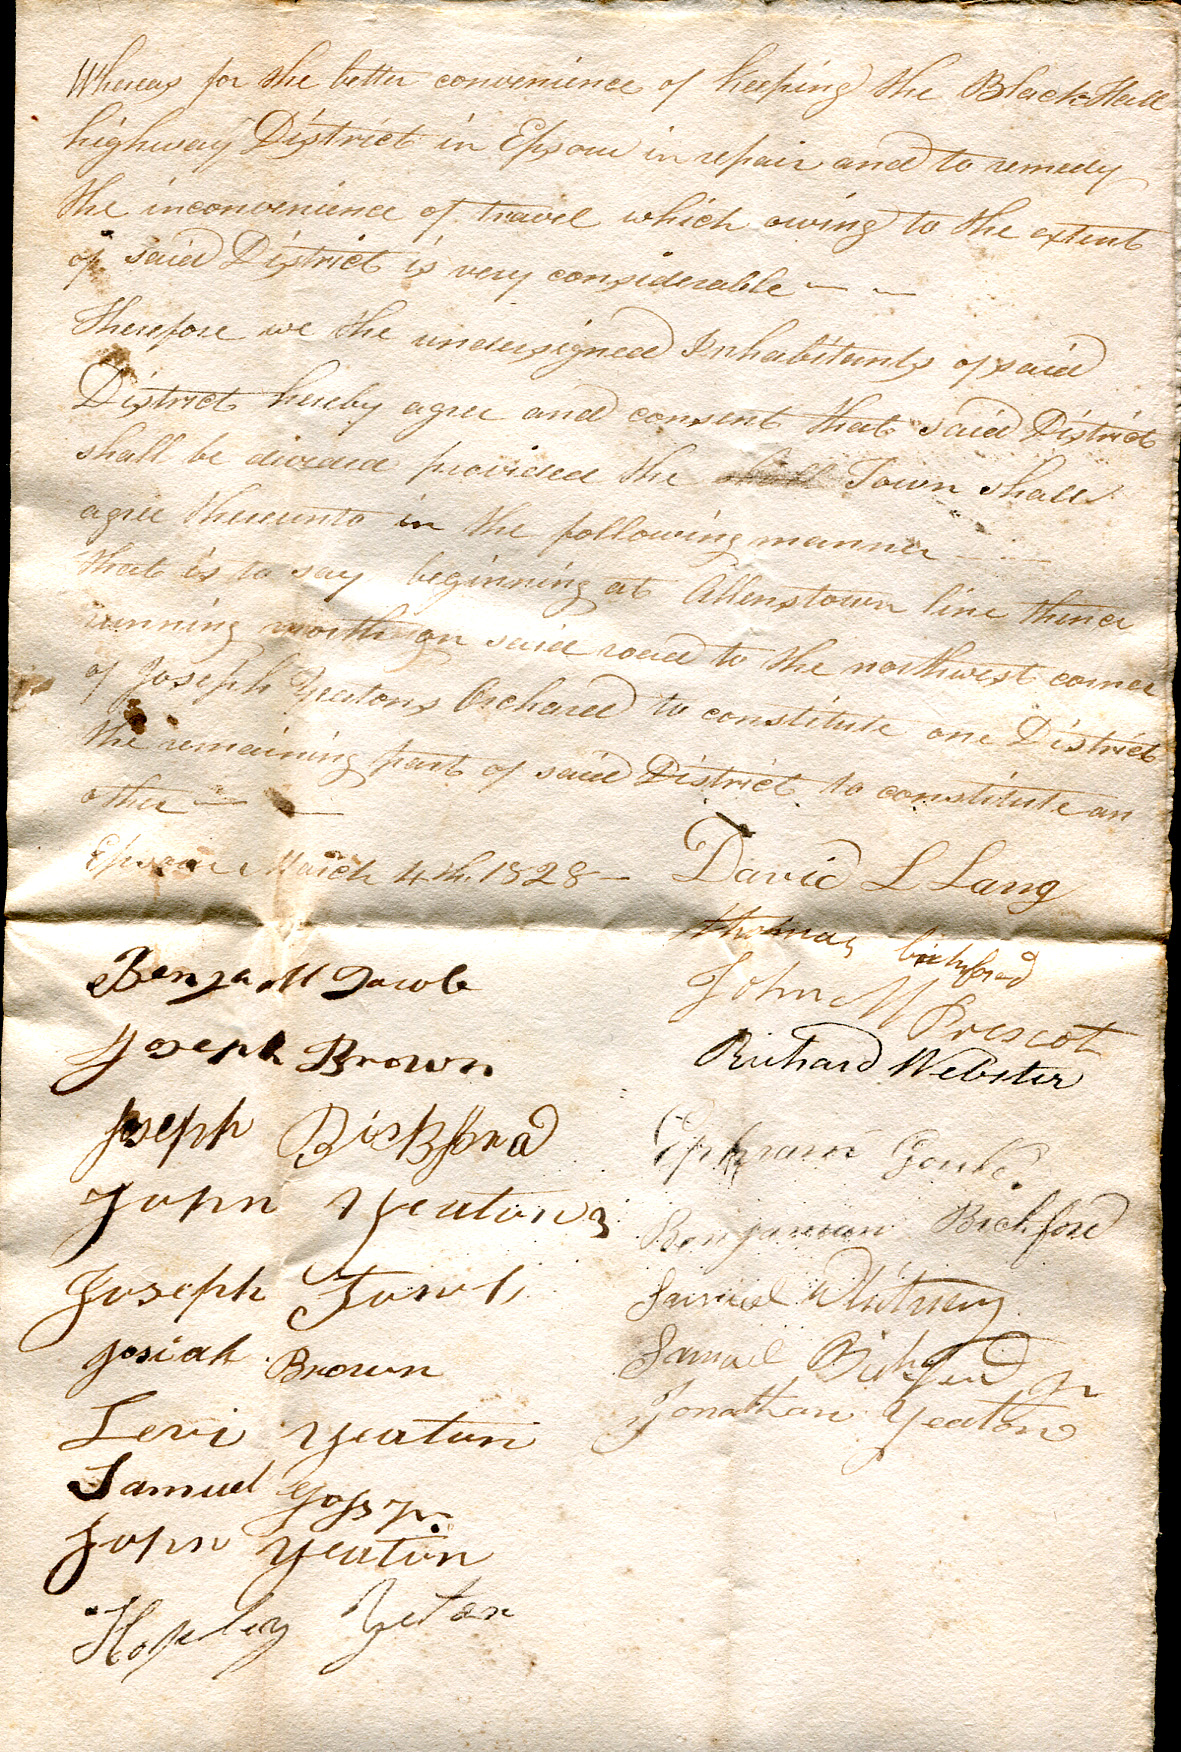 Whereas for the better convenience of keeping the Black Hall
highway District in Epsom in repair and to remedy
the inconvenience of travel which owing to the extent
of said District is very considerable — —
Therefore we the undersigned Inhabitants of said
District hereby agree and consent that said District
shall be divided provided the Town shall
agree thereunto in the following manner —
that is to say beginning at Allenstown line thence
running north on said road to the northwest corner
of Joseph Yeatons Orchard to constitute one District
the remaining part of said District to constitute an
other —
Epsom March 4th. 1828 —
David L Lang
Thomas bickford
John M Prescot
Richard Webster
Ephraim
Benjamin Bickford
Samuel Whitney
Samuel Bickford Jr
Jonathan Yeaton
Benja M
Joseph Brown
Joseph Bickford
John Yeaton 3
Joseph
Josiah Brown
Levi Yeaton
Samuel Goss Jr.
John Yeaton
Hopley Yeton